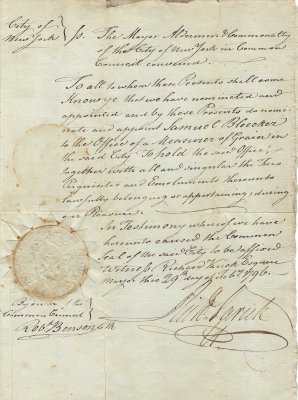 City of
New York } ss. The Mayor Aldermen & Commonalty
of the City of New York in Common
Council convened.
To all to whom these Presents shall come
Know ye that we have nominated and
appointed and by these Presents do nomi-
nate and appoint Samuel Bleecker
to the Office of a Measurer of Grain in
the said City To hold the said Office,
together with all and singular the Fees
Perquisites and Emoluments thereunto
lawfully belonging or appertaining, during
our Pleasure.
In Testimony whereof we have
hereunto caused the Common
Seal of the said City to be affixed
Witness Richard Varick Esquire
Mayor this 29 day of 1796.
Rich Varick
By order of the
Common Council
Robt Benson Clk